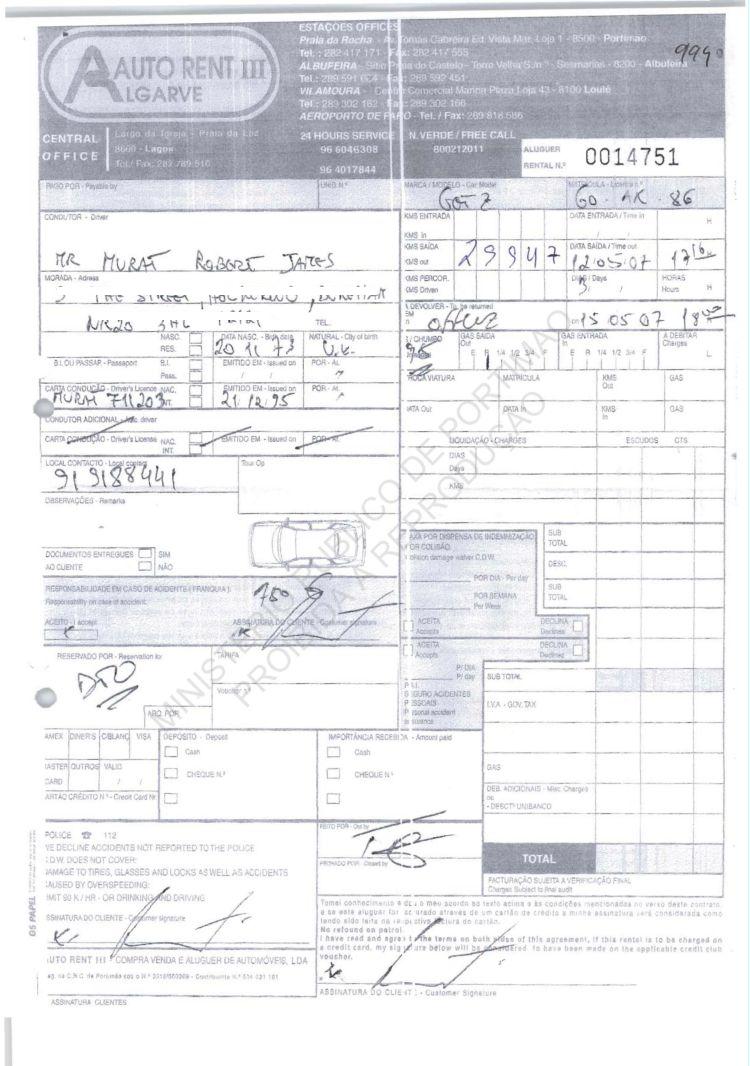 ESTAÇÕES OFFICES
Praia da Rocha - Av. Tomás Cabreira Ed. Vista Mar, Loja 1 - 8500 - Portimão
Tel.: 282 417 171 - Fax: 282 417 565
ALBUFEIRA - Sítio Praia do Castelo - Torre Velha S/n.º - Sesmarias - 8200 - Albufeira
Tel.: 289 591 Fax: 289 592 451
VILAMOURA - Centro Comercial Marina Plaza Loja 43 - 8100 Loulé
Tel.: 289 302 162 - Fax: 289 302 166
AEROPORTO DE FARO - Tel. / Fax: 289 818 586
AUTO RENT III
ALGARVE
CENTRAL OFFICE
Largo da Igreja - Praia da Luz
8600 - Lagos
Tel./ Fax: 282 789 510
24 HOURS SERVICE
96 6046308
96 4017844
N. VERDE / FREE CALL
800212011
ALUGUER
RENTAL N.º 0014751
PAGO POR - Payable by
MARCA / MODELO - Car Model
MATRÍCULA - Licence n.º
86
CONDUTOR - Driver
MR MURAT ROBERT JAMES
KMS ENTRADA
KMS In
DATA ENTRADA / Time in
H
KMS SAÍDA
KMS out
29947
DATA SAÍDA / Time out
12 05 07
MORADA - Adress
KMS PERCOR.
KMS Driven
DIAS / Days
3
HORAS
Hours H
A DEVOLVER - To be returned
15 05 07
TEL.
NASC.
RES.
DATA NASC. - Birth date
20 11 73
NATURAL - City of birth
U.K.
GAS SAÍDA
Out
E R 1/4 1/2 3/4 F
GAS ENTRADA
In
E R 1/4 1/2 3/4 F
A DEBITAR
Charges
L
B.I. OU PASSAP. - Passaport
B.I.
Pass.
EMITIDO EM - Issued on
POR - At.
TROCA VIATURA
MATRÍCULA
KMS
Out
GAS
CARTA CONDUÇÃO - Driver's Licence
NAC.
INT.
MURAT 711203
EMITIDO EM - Issued on
21.12.95
POR - At.
DATA Out
DATA In
KMS
In
GAS
CONDUTOR ADICIONAL - Adic. driver
CARTA CONDUÇÃO - Driver's Licence
NAC.
INT.
EMITIDO EM - Issued on
POR - At.
LIQUIDAÇÃO - CHARGES
ESCUDOS
CTS
DIAS
Days
KMS
LOCAL CONTACTO - Local contact
919188441
Tour Op
OBSERVAÇÕES - Remarks
DOCUMENTOS ENTREGUES
AO CLIENTE
SIM
NÃO
TAXA POR DISPENSA DE INDEMNIZAÇÃO
POR COLISÃO
Collision damage waiver C.D.W.
POR DIA - Per day
POR SEMANA
Per Week
SUB
TOTAL
DESC.
SUB
TOTAL
RESPONSABILIDADE EM CASO DE ACIDENTE (FRANQUIA):
Responsability on case of accident.
750
ACEITO - I accept
ASSINATURA DO CLIENTE - Customer signature
ACEITA
Accepts
DECLINA
Declines
ACEITA
Accepts
DECLINA
Declines
RESERVADO POR - Reservation for
TARIFA
P/ DIA
P/ day
P.A.I.
SEGURO ACIDENTES
PESSOAIS
Personal accident
insurance
SUB TOTAL
I.V.A - GOV. TAX
GAS
DEB. ADICIONAIS - Misc. Charges
ou
- DESCTº UNIBANCO
AMEX DINERS C/BLANC VISA
MASTER CARD
OUTROS
VALID
CARTÃO CRÉDITO N.º - Credit Card Nr
DEPÓSITO - Deposit
Cash
CHEQUE N.º
IMPORTÂNCIA RECEBIDA - Amount paid
Cash
CHEQUE N.º
POLICE ☎ 112
WE DECLINE ACCIDENTS NOT REPORTED TO THE POLICE
C.D.W. DOES NOT COVER:
DAMAGE TO TIRES, GLASSES AND LOCKS AS WELL AS ACCIDENTS
CAUSED BY OVERSPEEDING:
LIMIT 90 K / HR - OR DRINKING AND DRIVING
ASSINATURA DO CLIENTE - Customer signature
FEITO POR - Out by
FECHADO POR - Closed by
TOTAL
FACTURAÇÃO SUJEITA A VERIFICAÇÃO FINAL
Charges Subject to final audit
Tomei conhecimento e dou o meu acordo ao texto acima e às condições mencionadas no verso deste contrato,
e se este aluguer for facturado através de um cartão de crédito a minha assinatura será considerada como
tendo sido feita na respectiva factura do cartão.
No refound on patrol
I have read and agree to the terms on both sides of this agreement, if this rental is to be charged on
a credit card, my signature below will be considered to have been made on the applicable credit club
voucher.
ASSINATURA DO CLIENTE - Customer Signature
AUTO RENT III - COMPRA VENDA E ALUGUER DE AUTOMÓVEIS, LDA
ASSINATURA CLIENTES
MINISTÉRIO PÚBLICO DE PORTIMÃO
PROIBIDA A REPRODUÇÃO